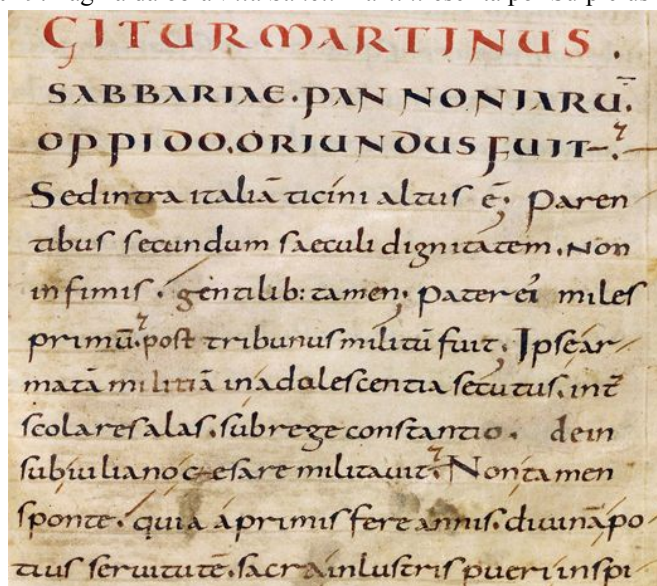 GITUR MARTINUS .
SABBARIAE. PAN NONIARU̅.
OPPIDO. ORIUNDUS FUIT
Sed intra italiā ticini altus ē; Paren
tibus secundum saeculi dignitatem. Non
infimis. gentilib: tamen; Pater ei miles
primū. post tribunus militū fuit; Ipse ar
matā militiā in adolescentia secutus. int̄
scolares alas. sub rege constantio. dein
sub iuliano cesare militauit. Non tamen
sponte. quia a primis fere annis. diuinā po
tius seruitutē. sacra inlustris pueri inspi